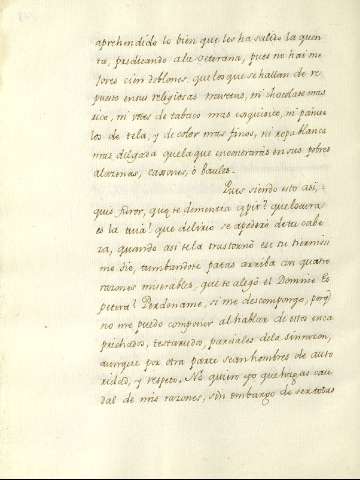 aprehendido lo bien que les ha salido la quen-
ta, predicando a la veterana, pues ni hai me-
jores cien doblones, que los que se hallan de re-
puesto en sus religiosas navetas, ni chocolate mas
rico, ni votes de tabaco mas exquisito, ni pañue-
los de tela, y de color mas finos, ni ropa blanca
mas delgada que la que encontraràs en sus pobres
alazenas, caxones, ò baules.
Pues siendo esto assi,
què furor, què te dementia cepit? què locura
es la tuia? què delirio se apoderò de tu cabe-
za, quando assi te la trastornò en su hermi
medio, tumbandote patas arriba con quatro
razones miserables, que te alegò el Domine Es
petera? Perdoname, si me descompongo, porq
no me puedo componer al hablar de estos enca
prichados, testarudos, parciales de la sinrazon,
aunque por otra parte sean hombres de auto
ridad, y respeto. No quiero yo que hagas cau-
dal de mis razones, sin embargo de ser todas